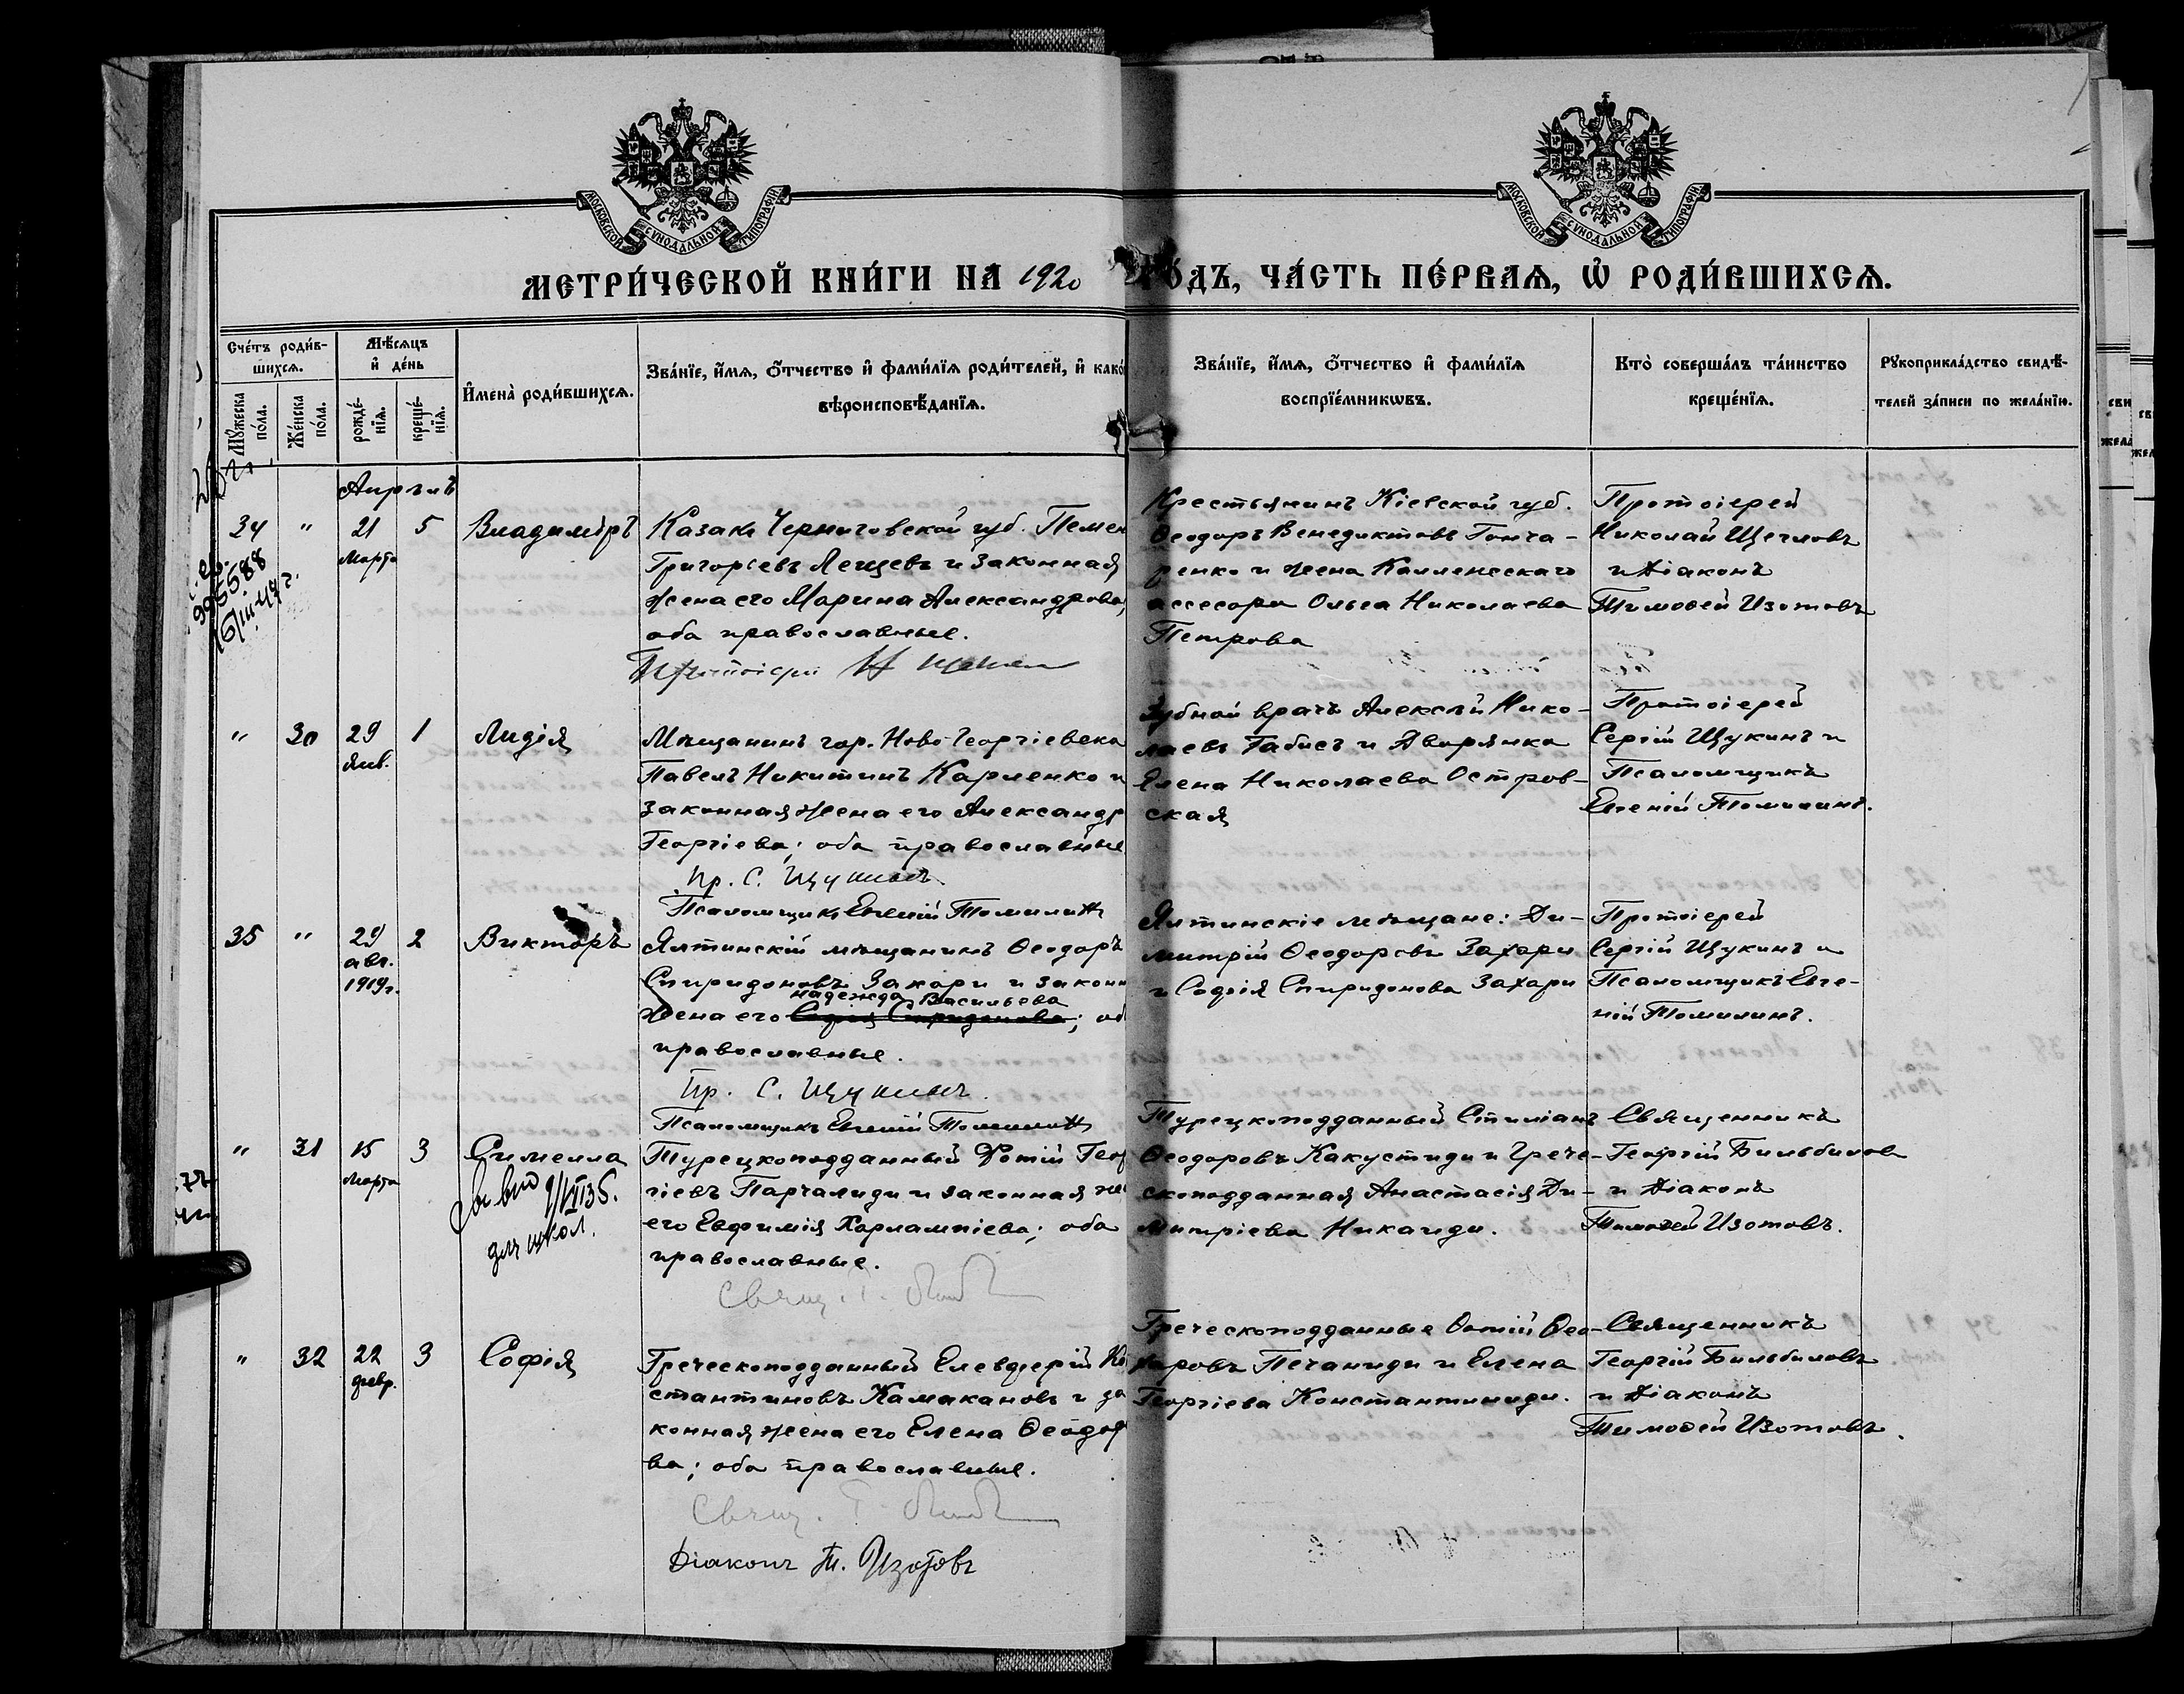 МОСКОВСКОЙ СУНОДАЛЬНОЙ ТИПОГРАФІИ
МОСКОВСКОЙ СУНОДАЛЬНОЙ ТИПОГРАФІИ
МЕТРИ́ЧЕСКОЙ КНИ́ГИ НА 1920 ГО́ДЪ, ЧА́СТЬ ПЕ́РВАѦ, Ѡ҆ РОДИ́ВШИХСѦ.
Сче́тъ роди́в-
шихсѧ.
Мꙋ́жеска
по́ла.
Же́нска
по́ла.
Мѣ́сѧцъ
и҆ де́нь
рожде́-
нїѧ.
креще́-
нїѧ.
И҆мена̀ роди́вшихсѧ.
Зва́нїе, и҆́мѧ, ѻ҆́тчество и҆ фами́лїѧ роди́телей, и҆ како́
вѣроисповѣ́данїѧ.
Зва́нїе, и҆́мѧ, ѻ҆́тчество и҆ фами́лїѧ
воспрїе́мникѡвъ.
Кто̀ соверша́лъ та́инство
креще́нїѧ.
Рꙋкоприкла́дство свидѣ́-
телей за́писи по жела́нїю.
Апрѣль
34 " 21 5 Владиміръ
Марта
Казакъ Черниговской губ.
Григорьевъ Лещевъ и законная
жена его Марина Александрова,
оба православные.
Протоіерей Н
Крестьянинъ Кіевской губ.
Ѳеодоръ Венедиктовъ Гонча-
ренко и жена Коллежскаго
ассесора Ольга Николаева
Петрова
Протоіерей
Николай Щегловъ
и Діаконъ
Тимоѳей Изотовъ
" 30 29 1 Лидія
Янв.
Мѣщанинъ гор. Ново-Георгіевска
Павелъ Никитинъ Карпенко и
законная жена его Александр
Георгіева; оба православные
Пр. С. Щукинъ
Псаломщикъ Евгеній Томилинъ
Зубной врачъ Алексѣй Нико-
лаевъ Габисъ и Дворянка
Елена Николаева Остров-
ская
Протоіерей
Сергій Щукинъ и
Псаломщикъ
Евгеній Томилинъ.
35 " 29 2 Викторъ
авг.
1919г.
Ялтинскій мѣщанинъ Ѳеодоръ
Спиридоновъ Захари и закон
Надежда Васильева
жена его Софія Спиридонова; об
православные.
Пр. С. Щукинъ
Псаломщикъ Евгеній Томилинъ
Ялтинскіе мѣщане: Ди-
митрій Ѳеодоровъ Захари
и Софія Спиридонова Захари
Протоіерей
Сергій Щукинъ и
Псаломщикъ Евге-
ній Томилинъ.
" 31 15 3 Симелла
Марта
для школ.
Турецкоподданный Фотій Геор
гіевъ Парчалиди и законная же
его Евфимія Харлампіева; оба
православные.
Свящ. Г.
Турецкоподданный Стиліанъ
Ѳеодоровъ Какустиди и Грече-
скоподданная Анастасія Ди-
митріева Никаиди.
Священникъ
Георгій Бильбиловъ
и Діаконъ
Тимоѳей Изотовъ.
" 32 22 3 Софія
февр.
Греческоподданный Елевферій Ко
стантиновъ Камакановъ и за
конная жена его Елена Ѳеодор
ва; оба православные.
Свящ. Г.
Діаконъ Т. Изотовъ
Греческоподданные Фотій Ѳео-
доровъ Печаниди и Елена
Георгіева Константиниди.
Священникъ
Георгій Бильбиловъ
и Діаконъ
Тимоѳей Изотовъ.